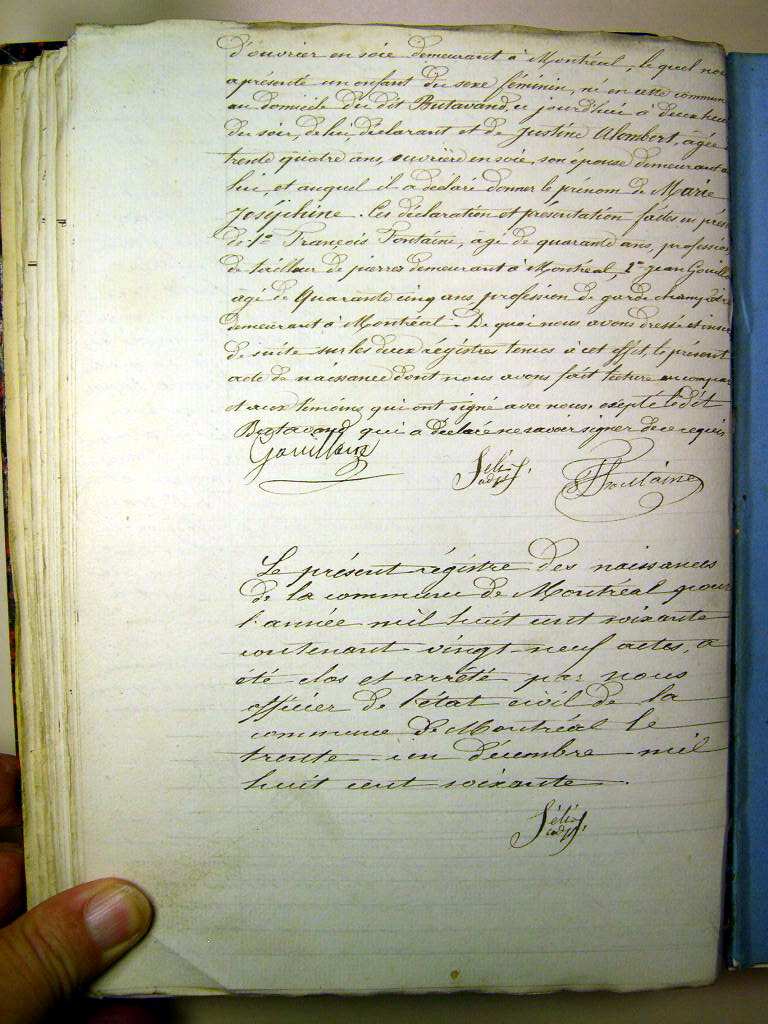 d'ouvrier en soie demeurant à Montréal, le quel nous
a présenté un enfant du sexe féminin, né en cette commune
au domicile du dit Butavand, ce jourd'hui à deux heures
du soir, de lui, déclarant et de Justine Alombert, âgée
trente quatre ans, ouvrière en soie, son épouse demeurant a
lui, et auquel il a déclaré donner le prénom de Marie
Joséphine. Ces déclaration et présentation faites en prés
de 1° François Fontaine, âgé de quarante ans, profession
de tailleur de pierres demeurant à Montréal, 2° Jean Gouill
âgé de Quarante cinq ans, profession de garde champêtre
demeurant à Montréal. De quoi nous avons dressé et inscr
de suite sur les deux régistres tenus à cet effet, le présent
acte de naissance dont nous avons fait lecture au compar
et aux temoins, qui ont signé avec nous, excepté le dit
Butavand qui a déclaré ne savoir signer de ce requis
Gouilloux
Fontaine
Le présent régistre des naissances
de la commune de Montréal pour
l'année mil huit cent soixante
contenant vingt-neuf actes, a
été clos et arrété par nous
officier de l'état civil de la
commune de Montréal le
trente-un décembre mil
huit cent soixante.